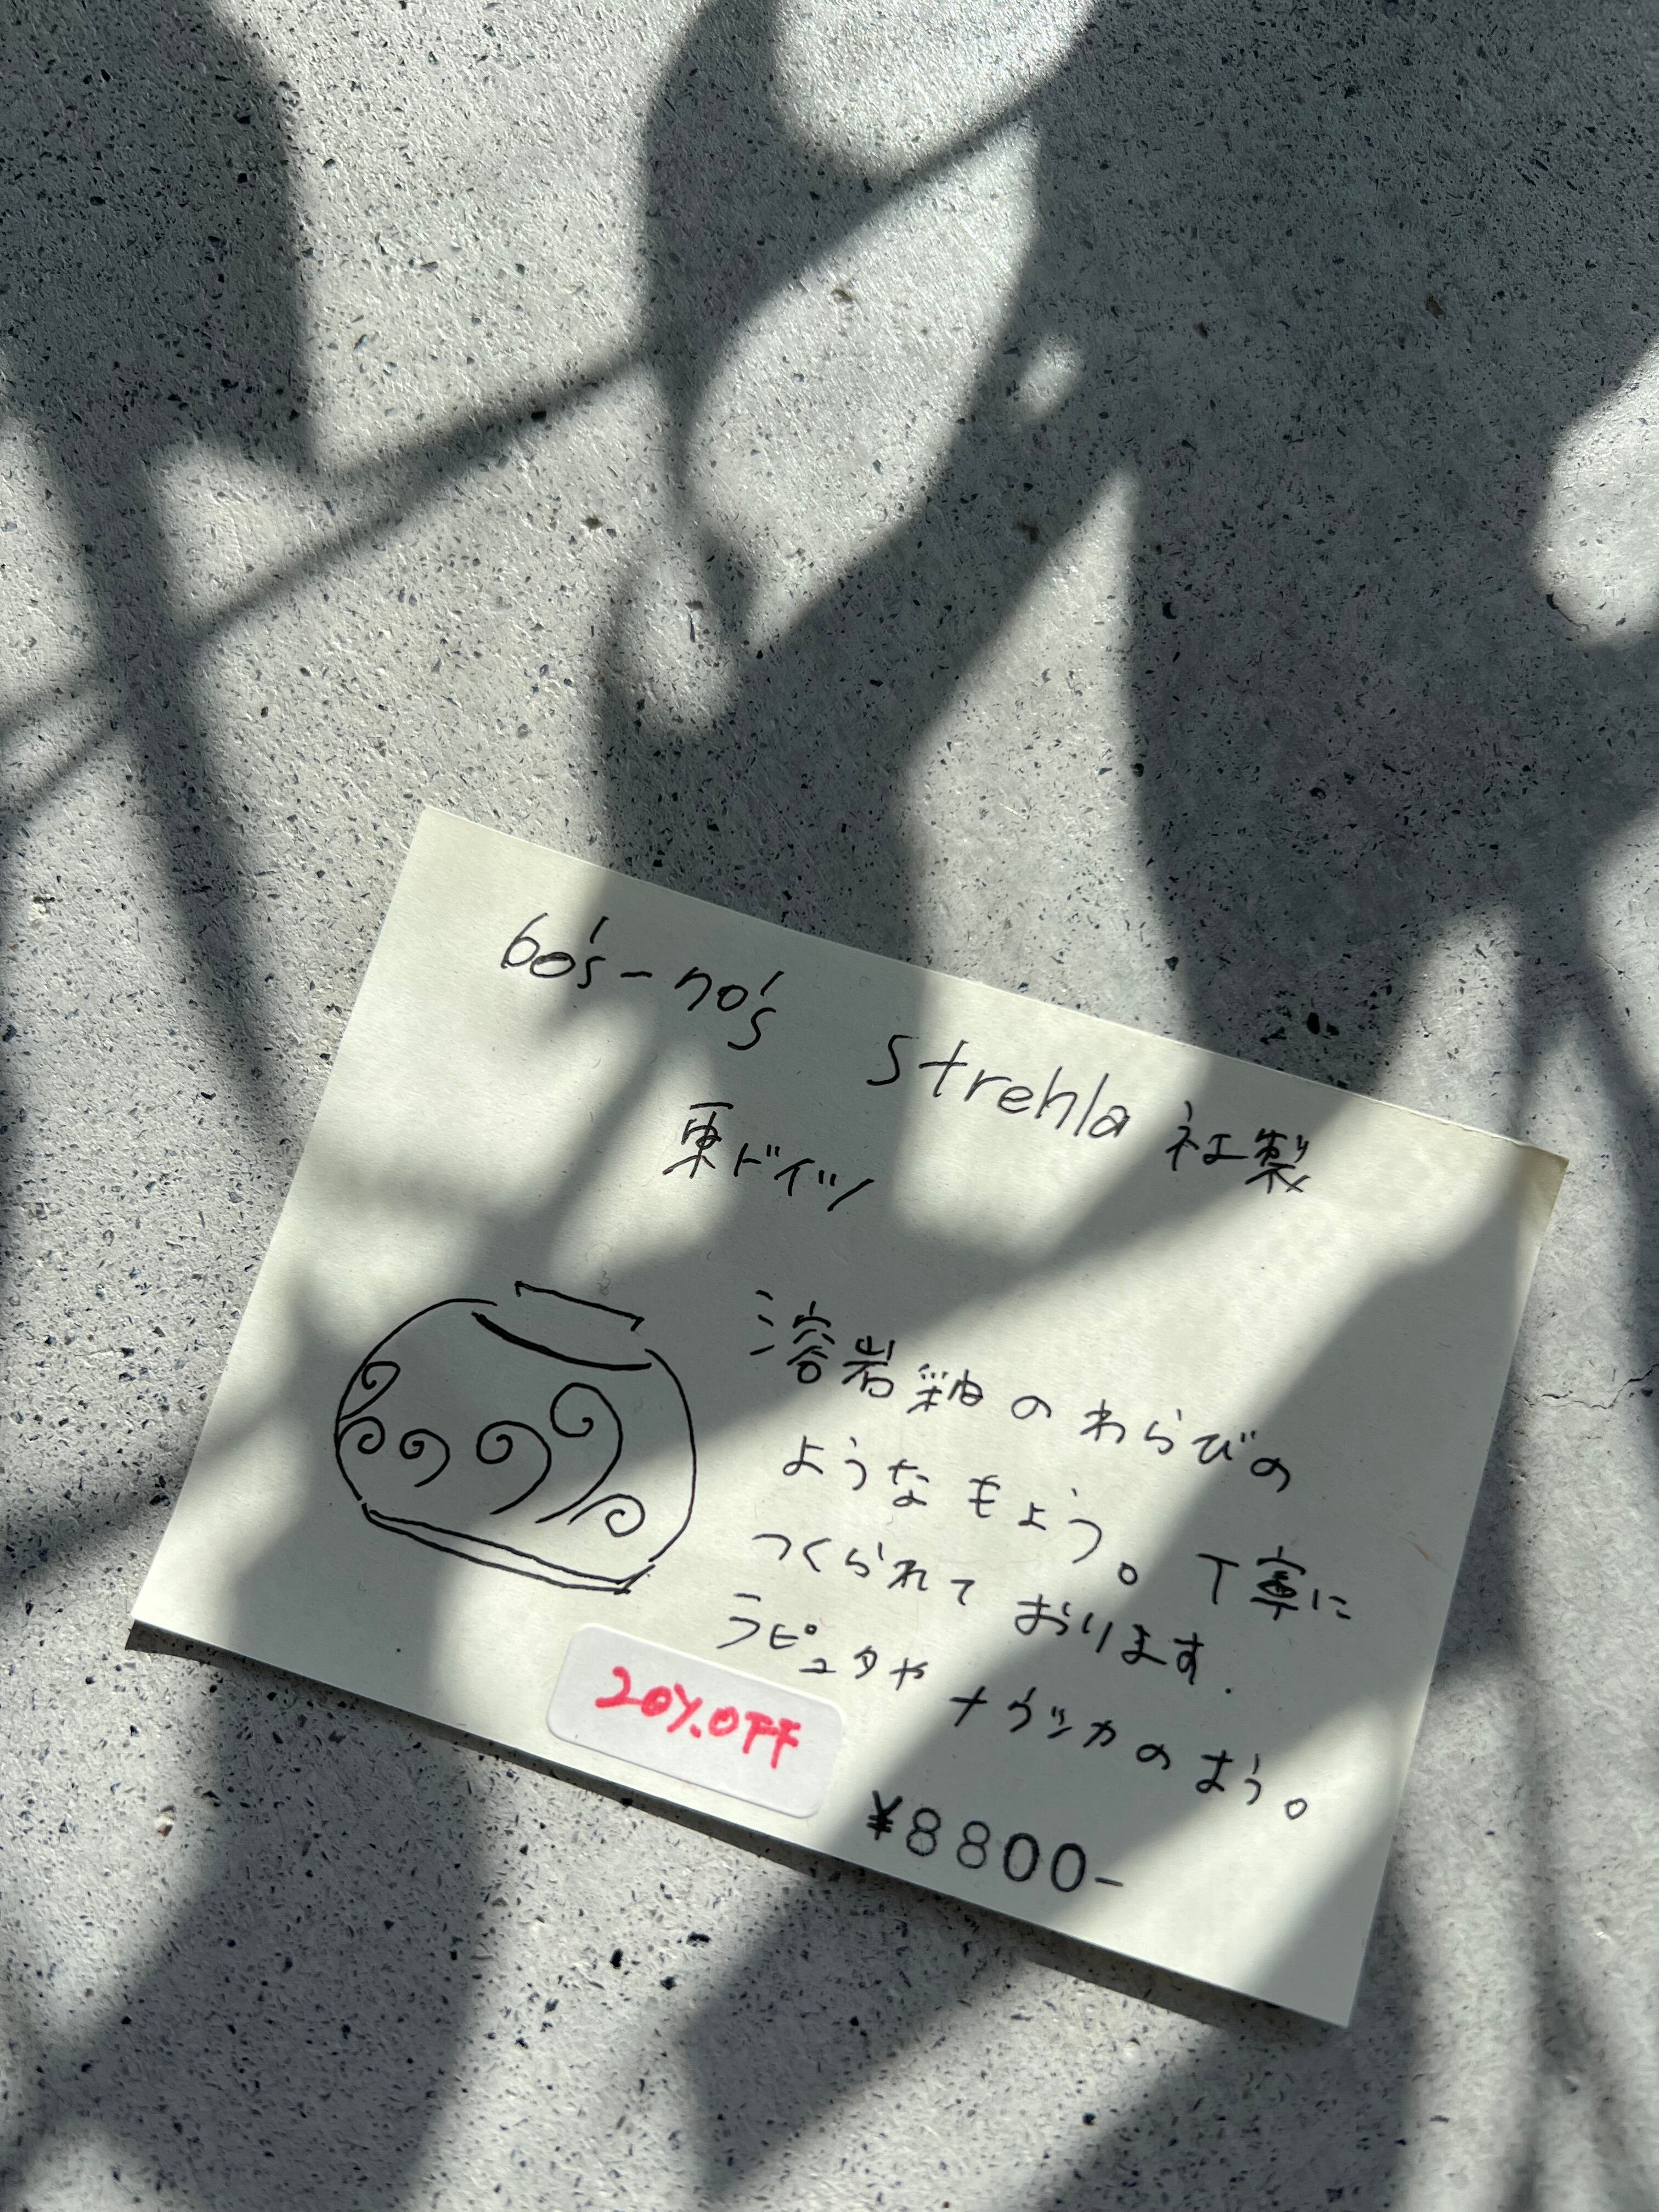 60's-70's Strehla 社製
東ドイツ
溶岩釉のわらびの
ようなもよう。丁寧に
つくられております.
ラピュタやナウシカのよう。
20%OFF
¥8800-